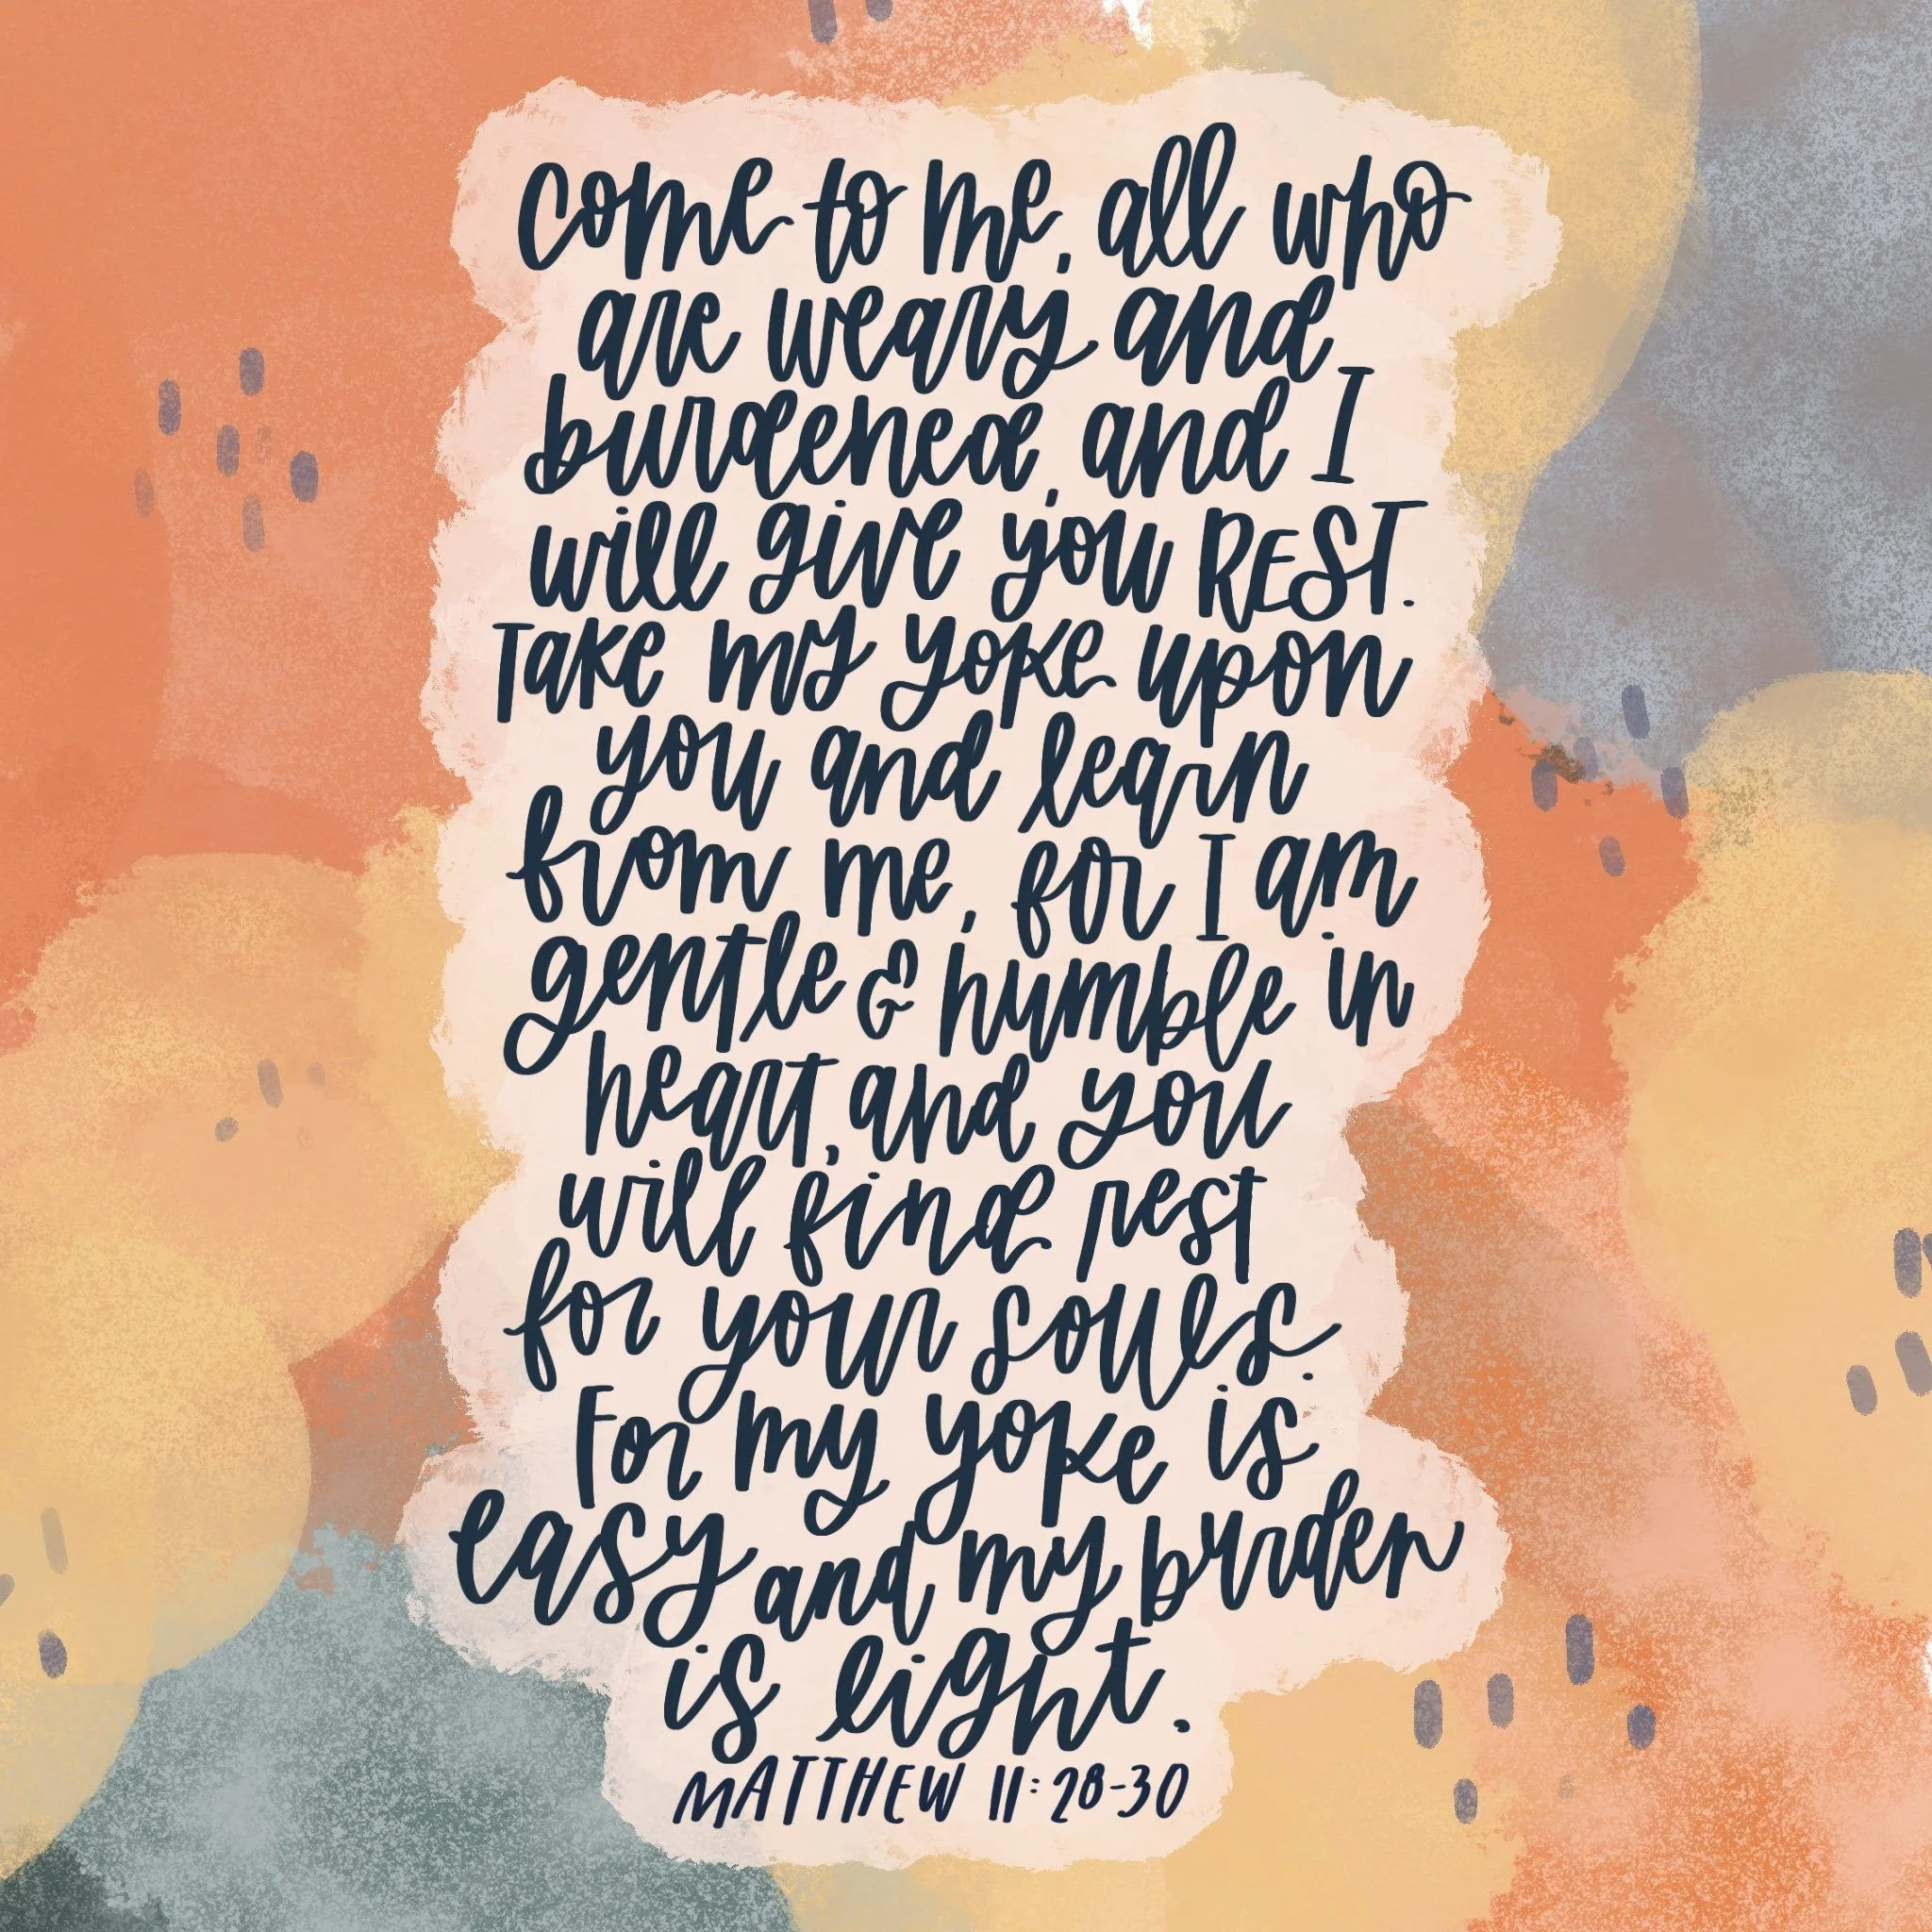 come to me, all who
are weary and
burdened, and I
will give you REST.
Take my yoke upon
you and learn
from me, for I am
gentle & humble in
heart, and you
will find rest
for your souls.
For my yoke is
easy and my burden
is light.
MATTHEW 11:28-30